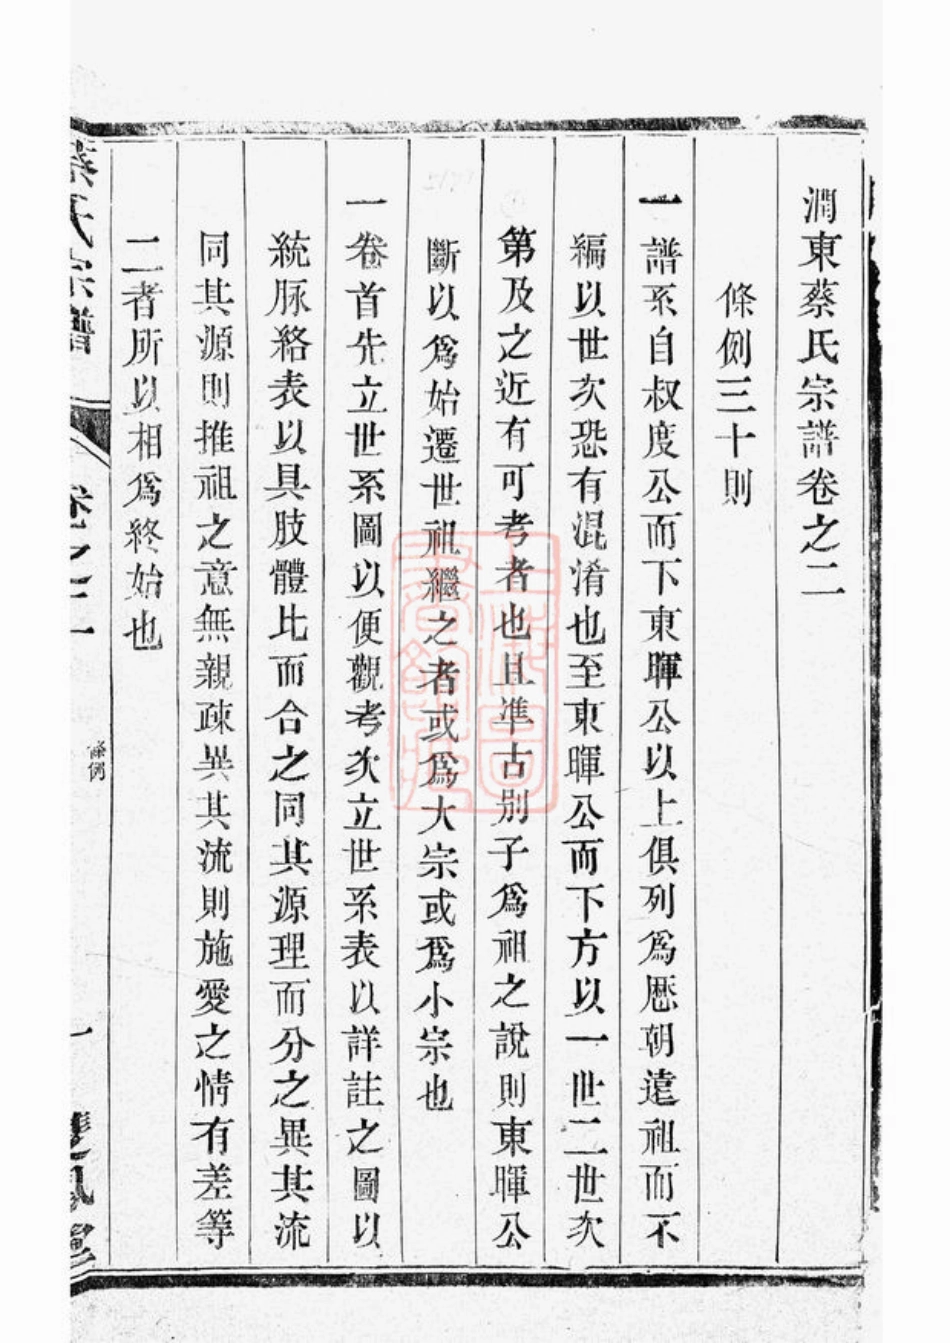 潤東蔡氏宗譜卷之二
條例三十則
一譜系自叔度公而下東暉公以上俱列爲歷朝遠祖而不
編以世次恐有混淆也至東暉公而下方以一世二世次
第及之近有可考者也且準古別子爲祖之說則東暉公
斷以爲始遷世祖繼之者或爲大宗或爲小宗也
一卷首先立世系圖以便觀考次立世系表以詳註之圖以
統脉絡表以具肢體比而合之同其源理而分之異其流
同其源則推祖之意無親疎異其流則施愛之情有差等
二者所以相爲終始也
蔡氏宗譜
卷之二
條例
一